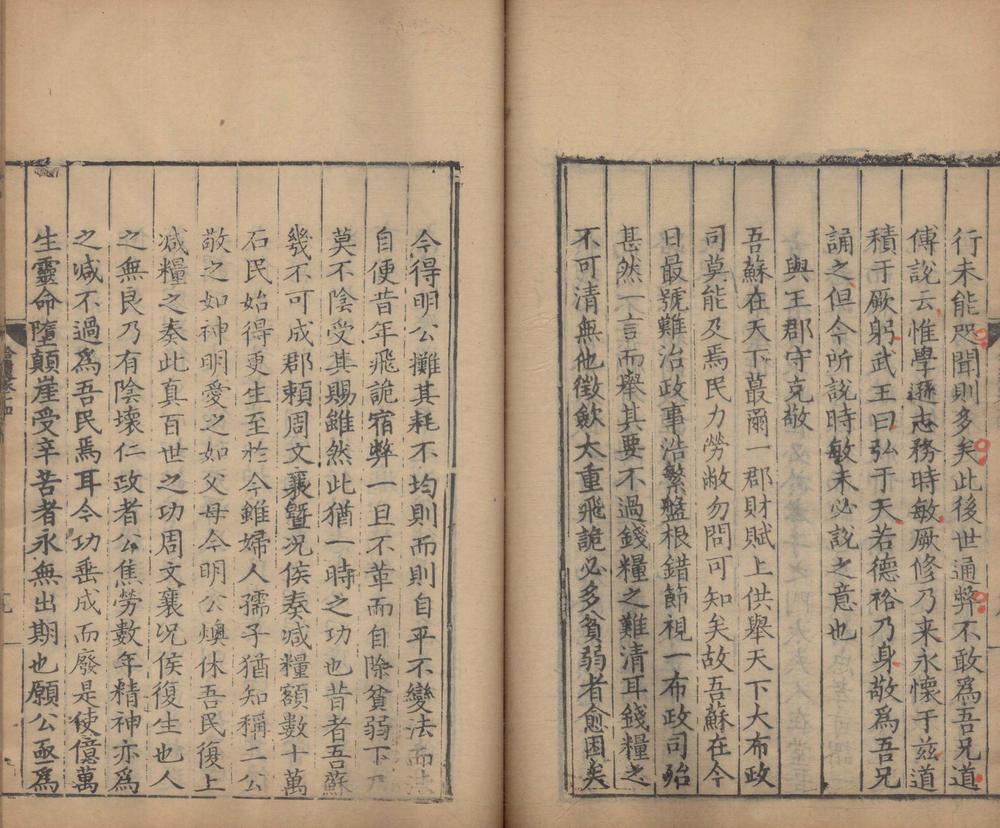 行未能咫聞則多矣此後世通弊不敢爲吾兄道
傅說云惟學遜志務時敏厥修乃来永懷于兹道
積于厥躬武王曰弘于天若德裕乃身敬爲吾兄
誦之但今所説時敏未必說之意也
與王郡守克敬
吾蘇在天下蕞爾一郡財賦上供舉天下大布政
司莫能及焉民力勞敝勿問可知矣故吾蘇在今
日最號難治政事浩繁盤根錯節視一布政司殆
甚然一言而舉其要不過錢糧之難清耳錢糧之
不可清無他徴歛太重飛詭必多貧弱者愈困矣
今得明公攤其耗不均則而則自平不變法而法
自便昔年飛詭宿弊一旦不革而自除貧弱下
莫不陰受其賜雖然此猶一時之功也昔者吾蘇
幾不可成郡頼周文襄曁况侯奏减糧額數十萬
石民始得更生至於今雖婦人孺子猶知稱二公
敬之如神明愛之如父母今明公燠休吾民復上
减糧之奏此真百世之功周文襄况侯復生也人
之無良乃有陰壊仁政者公焦勞數年精神亦爲
之减不過爲吾民焉耳今功垂成而廢是使億萬
生靈命墮顛崖受辛苦者永無出期也願公亟爲